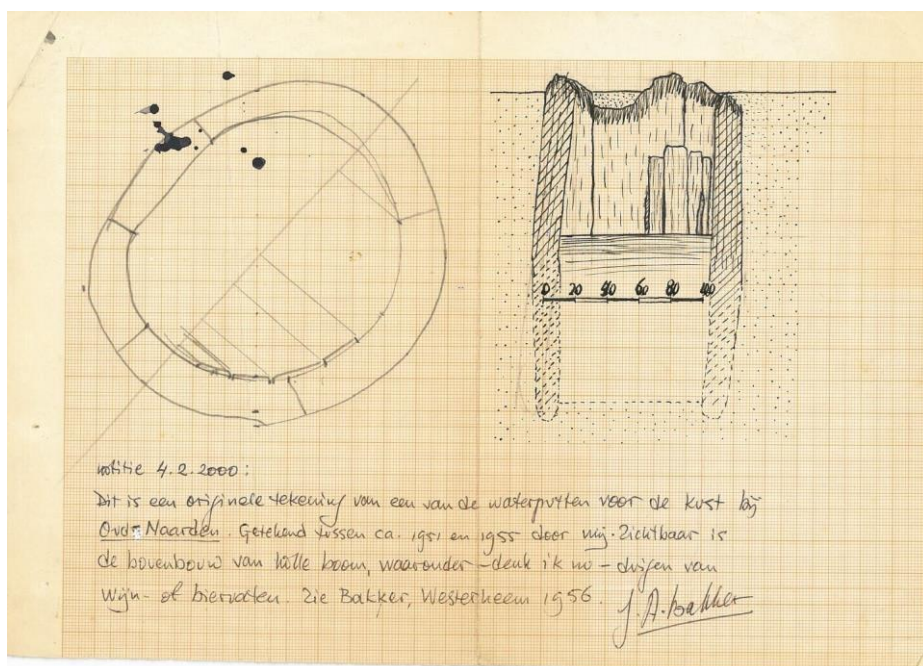 0 20 40 60 80 100
notitie 4.2.2000:
Dit is een originele tekening van een van de waterputten voor de kust bij
Oud-Naarden. Getekend tussen ca. 1951 en 1955 door mij. Zichtbaar is
de bovenbouw van holle boom, waaronder – denk ik nu – duigen van
Wijn- of biervaten. Zie Bakker, Westerheem 1956.
J.A. Bakker